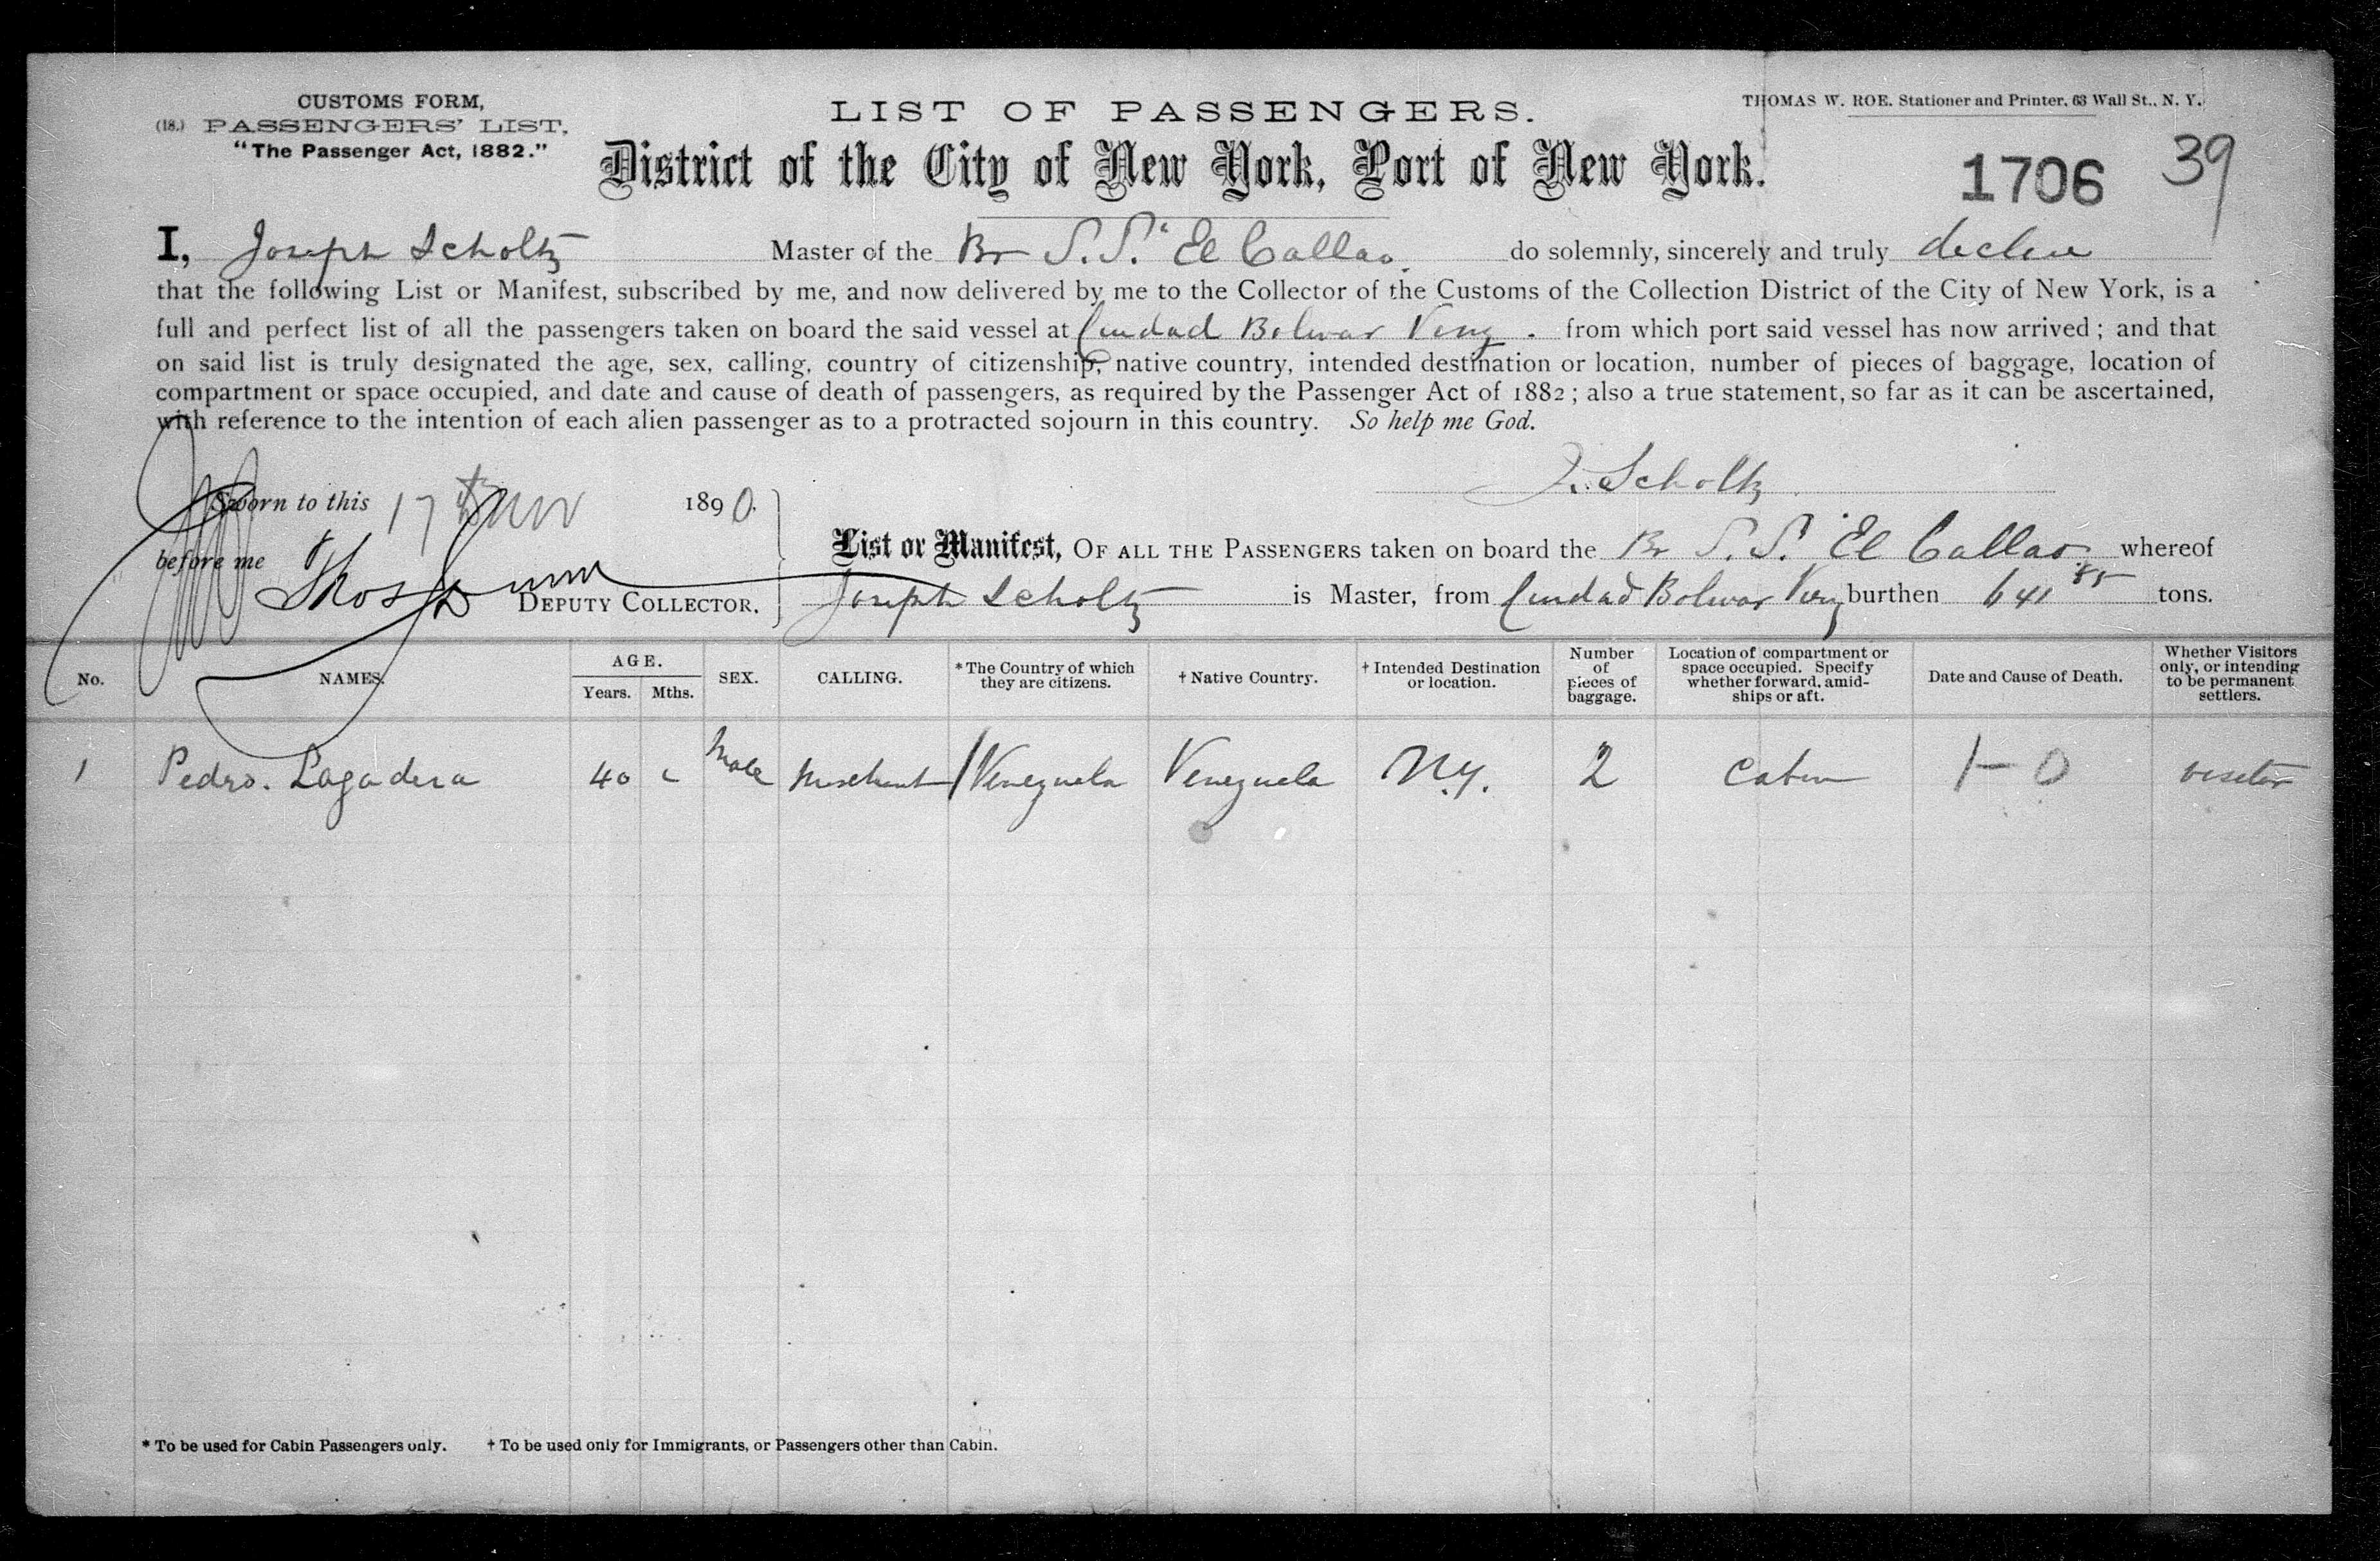 CUSTOMS FORM,
(18.) PASSENGERS' LIST,
"The Passenger Act, 1882."
LIST OF PASSENGERS.
District of the City of New York, Port of New York.
THOMAS W. ROE. Stationer and Printer, 63 Wall St., N. Y.
1706 39
I, Joseph Scholtz Master of the Br S.S. El Callao. do solemnly, sincerely and truly declare
that the following List or Manifest, subscribed by me, and now delivered by me to the Collector of the Customs of the Collection District of the City of New York, is a
full and perfect list of all the passengers taken on board the said vessel at Ciudad Bolivar Venz. from which port said vessel has now arrived; and that
on said list is truly designated the age, sex, calling, country of citizenship, native country, intended destination or location, number of pieces of baggage, location of
compartment or space occupied, and date and cause of death of passengers, as required by the Passenger Act of 1882; also a true statement, so far as it can be ascertained,
with reference to the intention of each alien passenger as to a protracted sojourn in this country. So help me God.
J. Scholtz
Sworn to this 17th Nov 1890.
before me Thos
DEPUTY COLLECTOR.
List or Manifest, OF ALL THE PASSENGERS taken on board the Br S.S. El Callao whereof
Joseph Scholtz is Master, from Ciudad Bolivar Venz burthen 641 85 tons.
No. NAMES. AGE. Years. Mths. SEX. CALLING. *The Country of which they are citizens. †Native Country. †Intended Destination or location. Number of pieces of baggage. Location of compartment or space occupied. Specify whether forward, amidships or aft. Date and Cause of Death. Whether Visitors only, or intending to be permanent settlers.
1 Pedro. Lagadera 40 Male Merchant Venezuela Venezuela N.Y. 2 Cabin 1-0 visitor
* To be used for Cabin Passengers only. † To be used only for Immigrants, or Passengers other than Cabin.